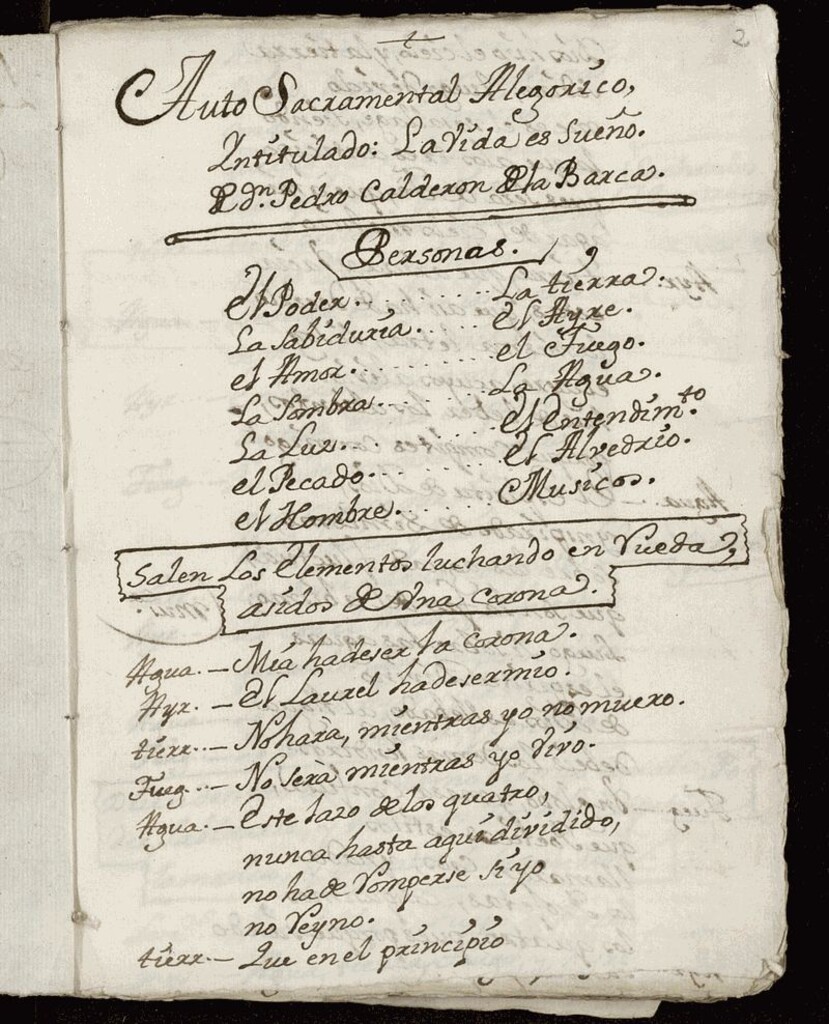 2
Auto Sacramental Alegorico,
Yntitulado: La Vida es Sueño.
De dn. Pedro Calderon De la Barca.
Personas.
el Poder. . . . . . . . La tierra.
La Sabiduria. . . . . . El Ayre.
el Amor. . . . . . . . el Fuego.
La Sombra. . . . . . . La Agua.
La Luz. . . . . . . . El Entendimto.
el Pecado. . . . . . . El Alvedrio.
el Hombre. . . . . . . Musicos.
Salen Los Elementos luchando en rueda,
asidos de Vna Corona.
Agua. — Mia ha de ser la corona.
Ayr. — El Laurel ha de ser mio.
tierr. — No hara, mientras yo no muero.
Fueg. — No serà mientras yo Vivo.
Agua. — Este lazo de los quatro,
nunca hasta aqui dividido,
no ha de romperse si yo
no reyno.
tierr. — Que en el principio